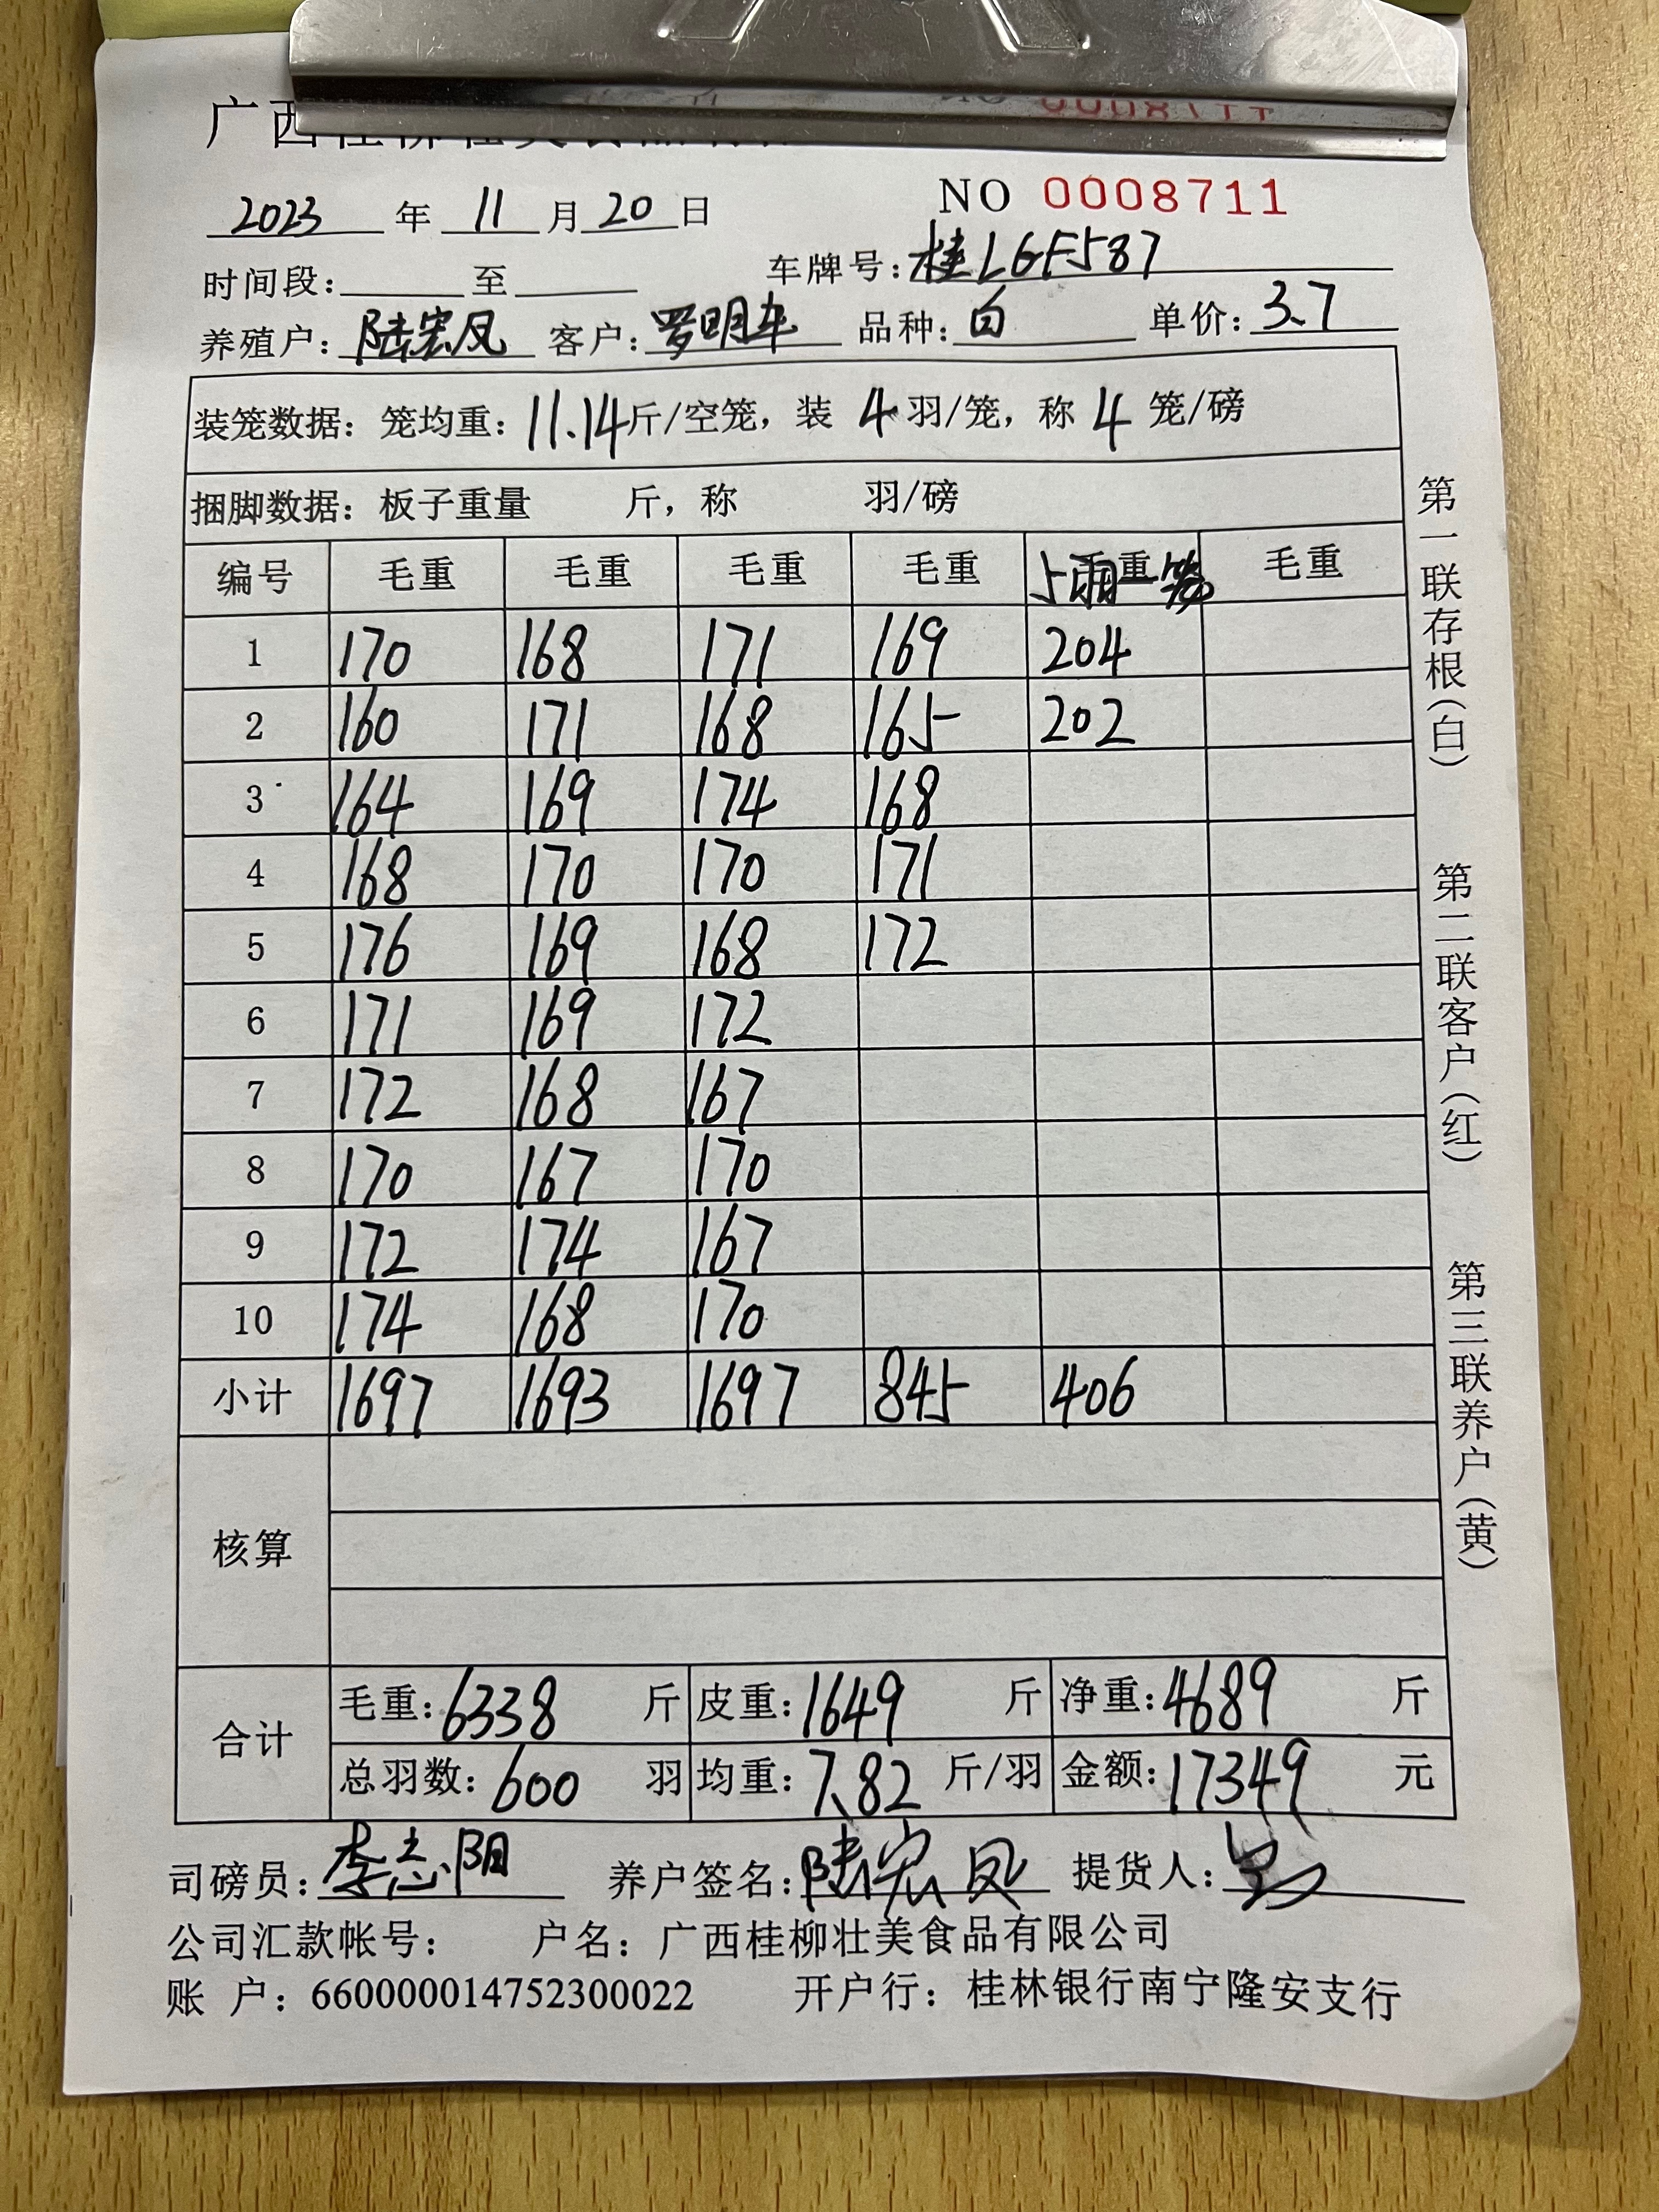 广西
NO 0008711
2023 年 11 月 20 日
时间段： 至 车牌号：桂LGF587
养殖户：陆宏凤 客户：罗明车 品种：白 单价：3.7
装笼数据：笼均重：11.14斤/空笼，装 4 羽/笼，称 4 笼/磅
捆脚数据：板子重量 斤，称 羽/磅
编号 毛重 毛重 毛重 毛重 重 毛重
1 170 168 171 169 204
2 160 171 168 165 202
3 164 169 174 168
4 168 170 170 171
5 176 169 168 172
6 171 169 172
7 172 168 167
8 170 167 170
9 172 174 167
10 174 168 170
小计 1697 1693 1697 845 406
核算
合计 毛重：6338 斤 皮重：1649 斤 净重：4689 斤
总羽数：600 羽 均重：7.82 斤/羽 金额：17349 元
司磅员：李志阳 养户签名：陆宏凤 提货人：
公司汇款帐号： 户名：广西桂柳壮美食品有限公司
账 户：660000014752300022 开户行：桂林银行南宁隆安支行
第一联存根（白）
第二联客户（红）
第三联养户（黄）